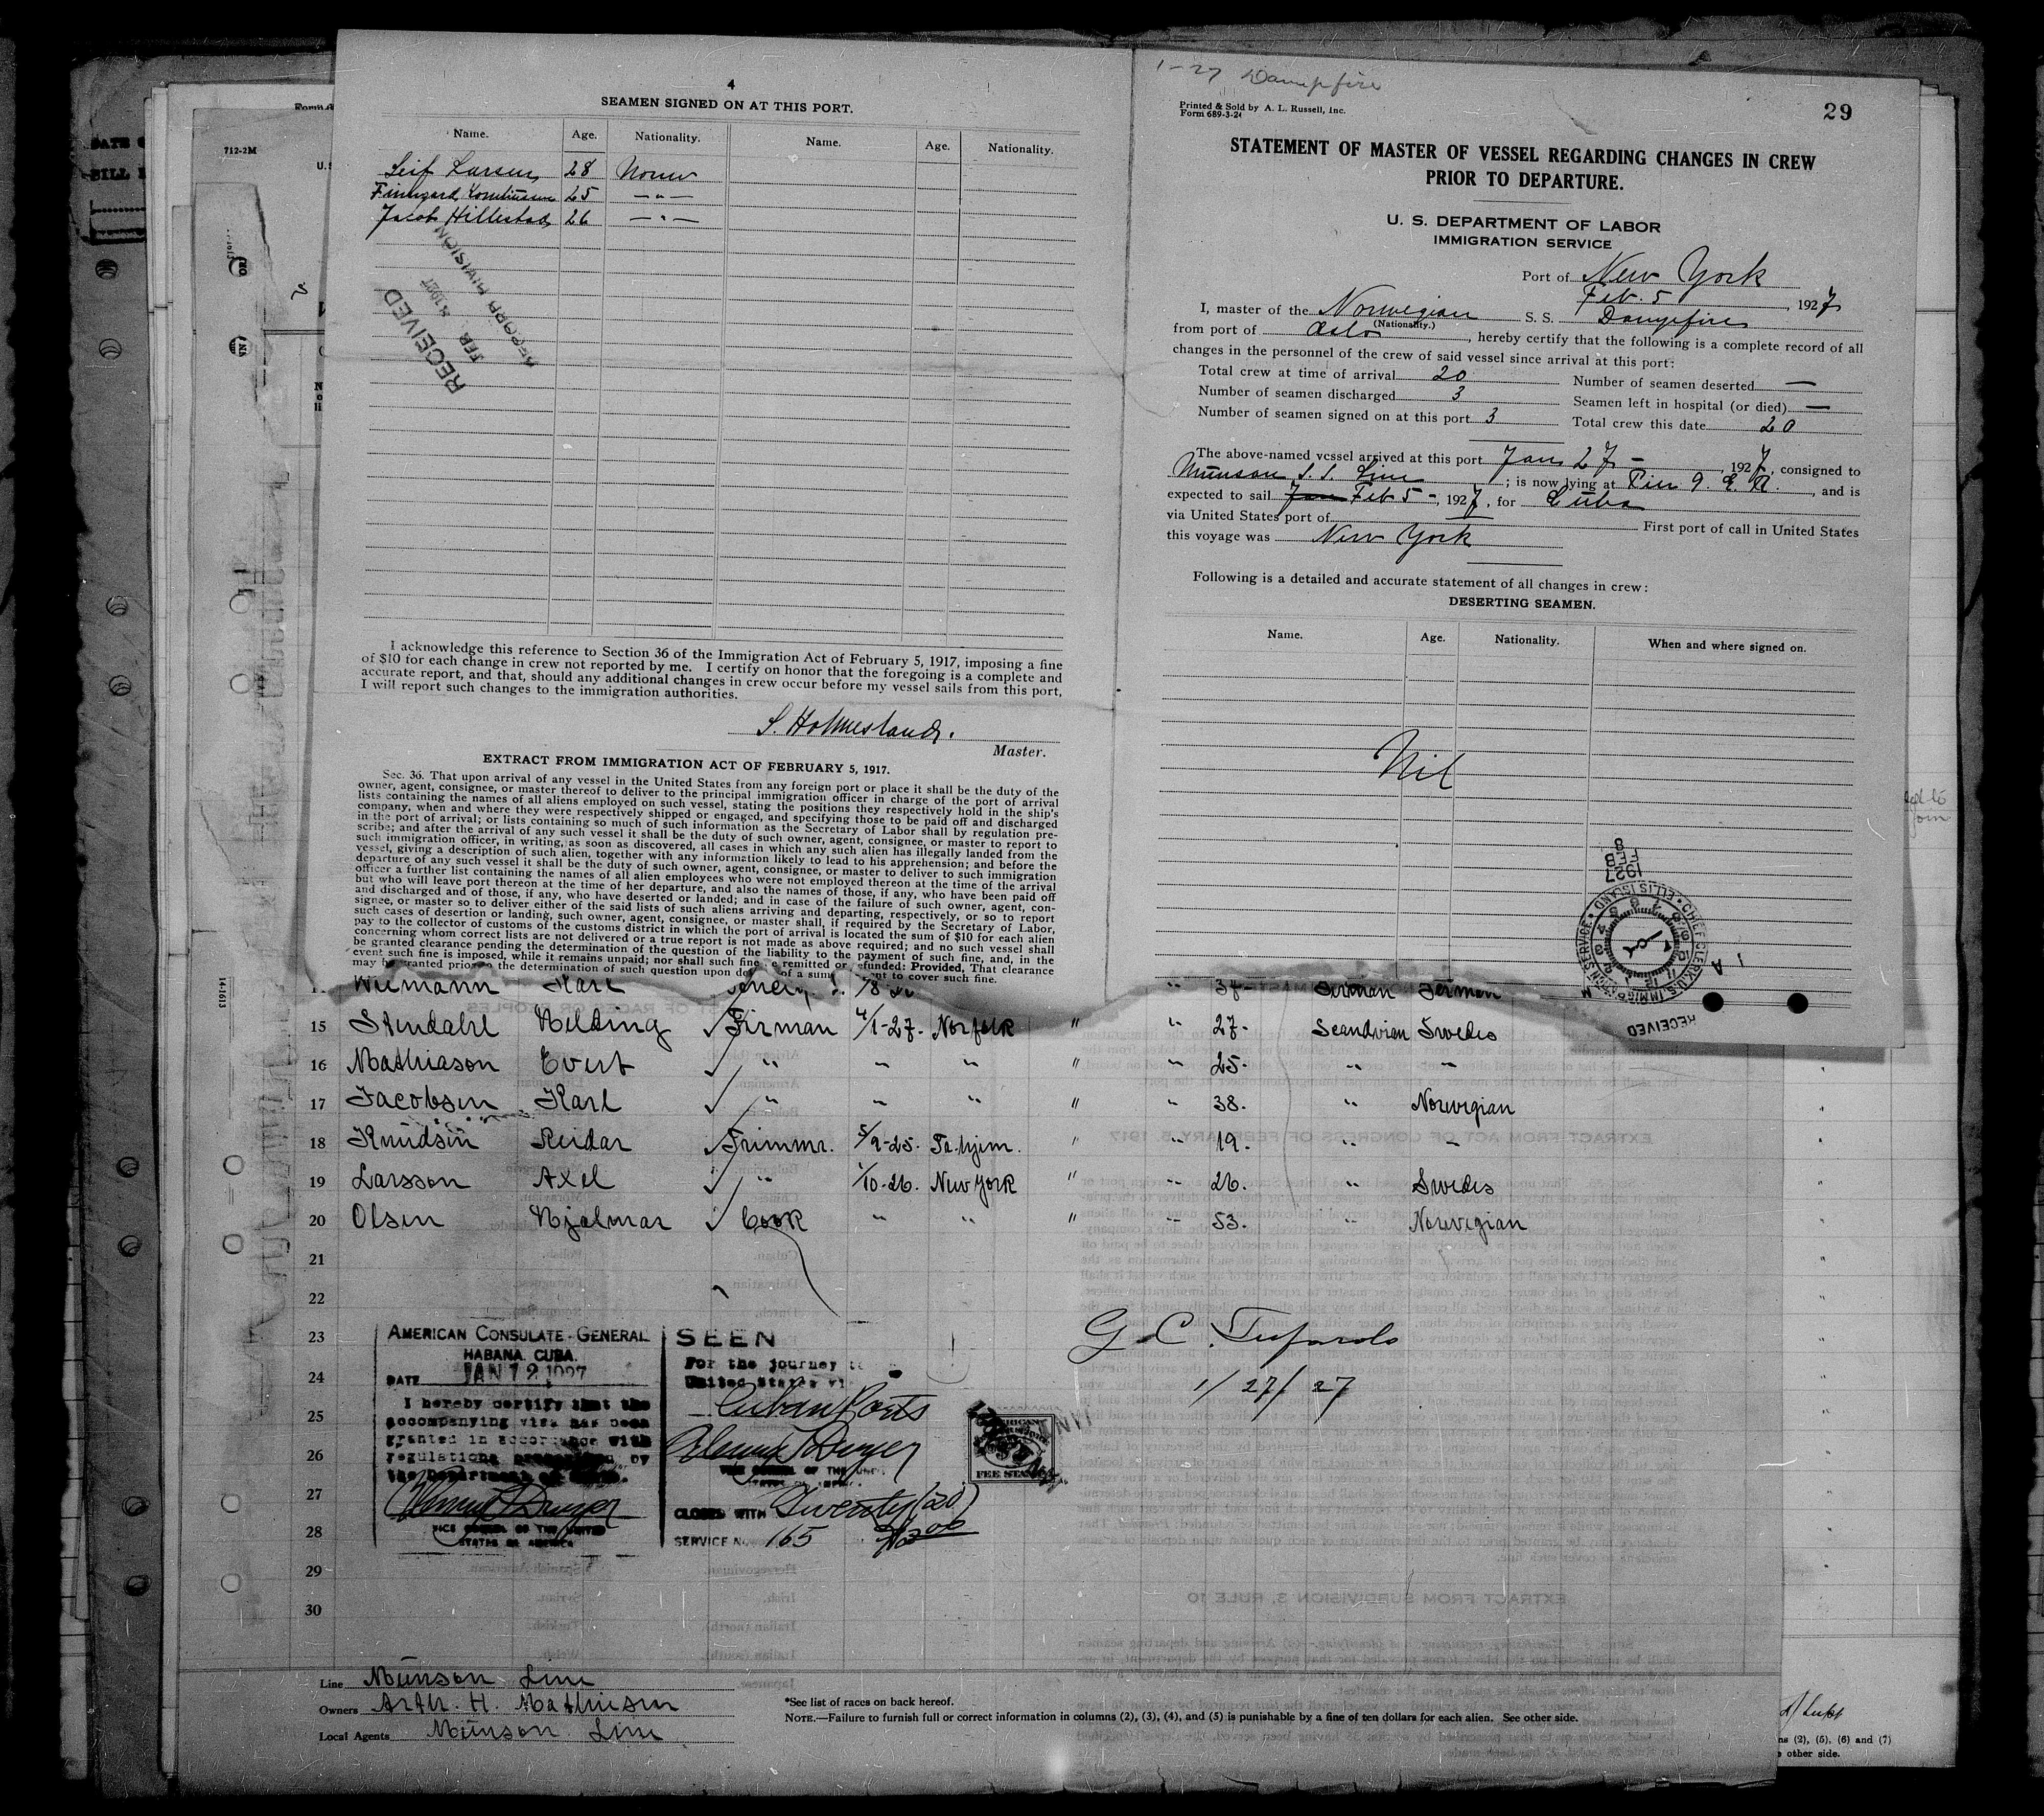 4
SEAMEN SIGNED ON AT THIS PORT.
Name. Age. Nationality. Name. Age. Nationality.
Leif Larsen 28 Norw
25 — " —
Jacob Hillestad 26 — " —
RECEIVED
FEB 1927
DIVISION
I acknowledge this reference to Section 36 of the Immigration Act of February 5, 1917, imposing a fine
of $10 for each change in crew not reported by me. I certify on honor that the foregoing is a complete and
accurate report, and that, should any additional changes in crew occur before my vessel sails from this port,
I will report such changes to the immigration authorities.
S. Holmesland.
Master.
EXTRACT FROM IMMIGRATION ACT OF FEBRUARY 5, 1917.
Sec. 36. That upon arrival of any vessel in the United States from any foreign port or place it shall be the duty of the
owner, agent, consignee, or master thereof to deliver to the principal immigration officer in charge of the port of arrival
lists containing the names of all aliens employed on such vessel, stating the positions they respectively hold in the ship's
company, when and where they were respectively shipped or engaged, and specifying those to be paid off and discharged
in the port of arrival; or lists containing so much of such information as the Secretary of Labor shall by regulation pre-
scribe; and after the arrival of any such vessel it shall be the duty of such owner, agent, consignee, or master to report to
such immigration officer, in writing, as soon as discovered, all cases in which any such alien has illegally landed from the
vessel, giving a description of such alien, together with any information likely to lead to his apprehension; and before the
departure of any such vessel it shall be the duty of such owner, agent, consignee, or master to deliver to such immigration
officer a further list containing the names of all alien employees who were not employed thereon at the time of the arrival
but who will leave port thereon at the time of her departure, and also the names of those, if any, who have been paid off
and discharged and of those, if any, who have deserted or landed; and in case of the failure of such owner, agent, con-
signee, or master so to deliver either of the said lists of such aliens arriving and departing, respectively, or so to report
such cases of desertion or landing, such owner, agent, consignee, or master shall, if required by the Secretary of Labor,
pay to the collector of customs of the customs district in which the port of arrival is located the sum of $10 for each alien
concerning whom correct lists are not delivered or a true report is not made as above required; and no such vessel shall
be granted clearance pending the determination of the question of the liability to the payment of such fine, and, in the
event such fine is imposed, while it remains unpaid; nor shall such fine be remitted or refunded: Provided, That clearance
may be granted prior to the determination of such question upon of a sum to cover such fine.
1-27 Dampfire
Printed & Sold by A. L. Russell, Inc.
Form 689-3-24
29
STATEMENT OF MASTER OF VESSEL REGARDING CHANGES IN CREW
PRIOR TO DEPARTURE.
U. S. DEPARTMENT OF LABOR
IMMIGRATION SERVICE
Port of New York
Feb. 5, 1927
I, master of the Norwegian S. S. Dampfire
(Nationality.)
from port of Oslo, hereby certify that the following is a complete record of all
changes in the personnel of the crew of said vessel since arrival at this port:
Total crew at time of arrival 20 Number of seamen deserted —
Number of seamen discharged 3 Seamen left in hospital (or died) —
Number of seamen signed on at this port 3 Total crew this date 20
The above-named vessel arrived at this port Jan 27 –, 1927, consigned to
Munson S. S. Line; is now lying at Pier 9. E. R., and is
expected to sail Jan Feb 5 –, 1927, for Cuba
via United States port of — First port of call in United States
this voyage was New York
Following is a detailed and accurate statement of all changes in crew:
DESERTING SEAMEN.
Name. Age. Nationality. When and where signed on.
Nil
1927
FEB
8
CHIEF CLERK U.S. IMMIGRATION SERVICE • ELLIS ISLAND
RECEIVED
Wiemann Karl " 37- German German
15 Stendahl Hilding Firman 4/1-27- Norfolk " " 27- Scandvian Swedes
16 Mathiason Evert " " " " 25- " "
17 Jacobsen Karl " " " " " 38. " Norwegian
18 Knudsen Reidar Trimmr. 5/9-25. " " 19. " "
19 Larsson Axel " 1/10-26. New York " " 26. " Swedes
20 Olsen Hjalmar Cook " " " " 53. " Norwegian
21
22
23
24
25
26
27
28
29
30
AMERICAN CONSULATE-GENERAL
HABANA, CUBA.
DATE JAN 12 1927
I hereby certify that the
accompanying visa has been
granted in accordance with
regulations by
the Department of State.
VICE CONSUL OF THE UNITED
STATES OF AMERICA
SEEN
For the journey to
United States
Cuban Ports
CLOSED WITH Twenty (20)
SERVICE No. 165
FEE STAMP
G C.
1/27/27
Line Munson Line
Owners Arth. H. Mathiesen
Local Agents Munson Line
*See list of races on back hereof.
NOTE.—Failure to furnish full or correct information in columns (2), (3), (4), and (5) is punishable by a fine of ten dollars for each alien. See other side.
ns (2), (5), (6) and (7)
e other side.
712-2M
14-1613